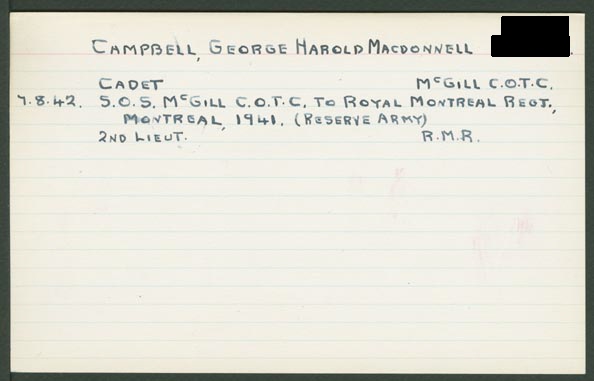 CAMPBELL, GEORGE HAROLD MACDONNELL
CADET McGILL C.O.T.C.
7.8.42. S.O.S. McGILL C.O.T.C. TO ROYAL MONTREAL REGT.,
MONTREAL, 1941. (RESERVE ARMY)
2ND LIEUT. R.M.R.